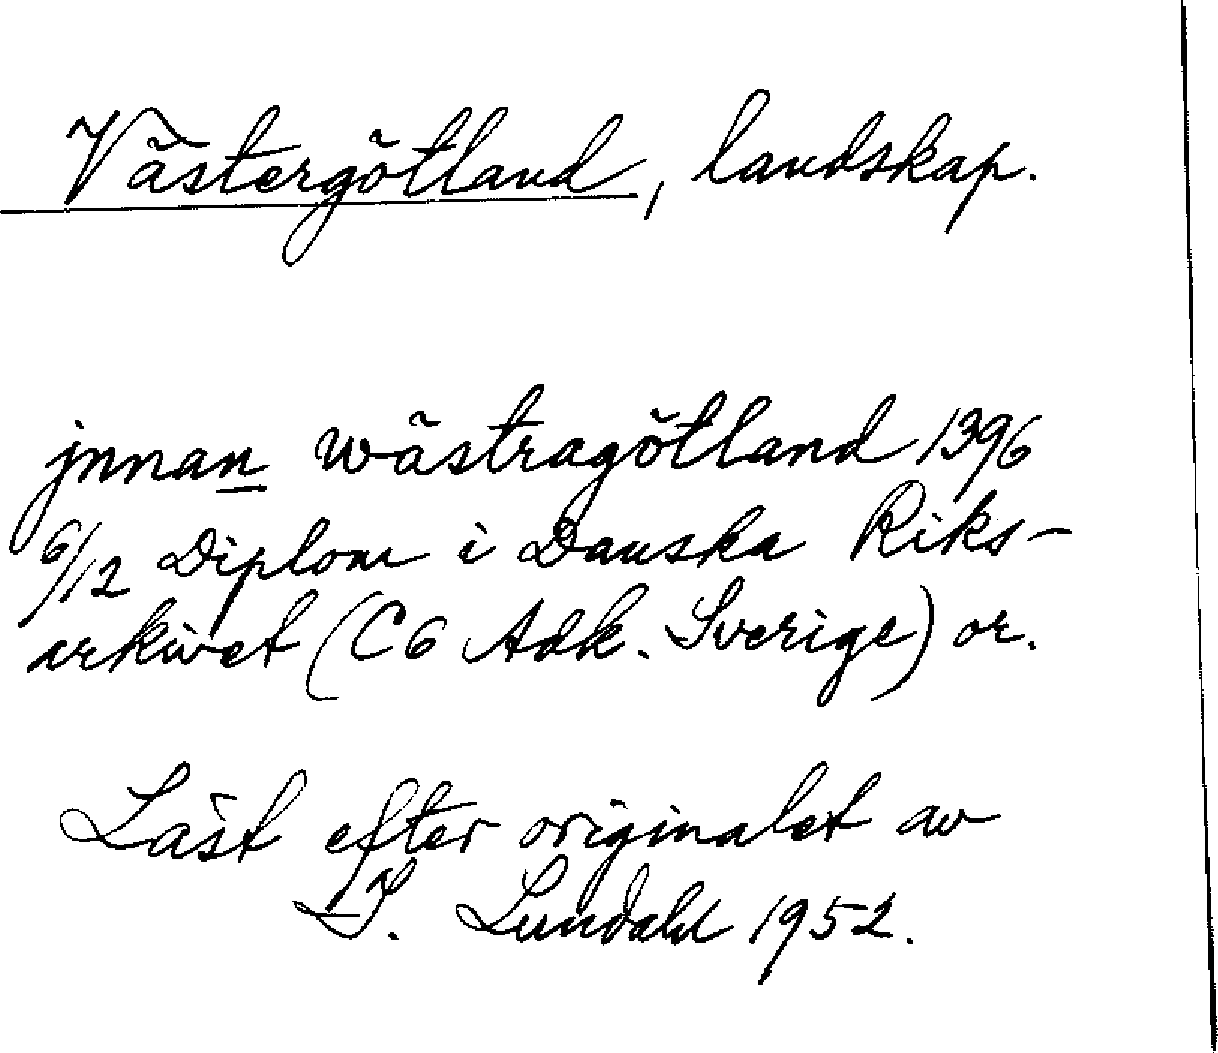 Västergötland, landskap.
jnnan wästragötland 1396
6/12 Diplom i Danska Riks-
arkivet (C6 Adk. Sverige) or.
Läst efter originalet av
I. Lundahl 1952.